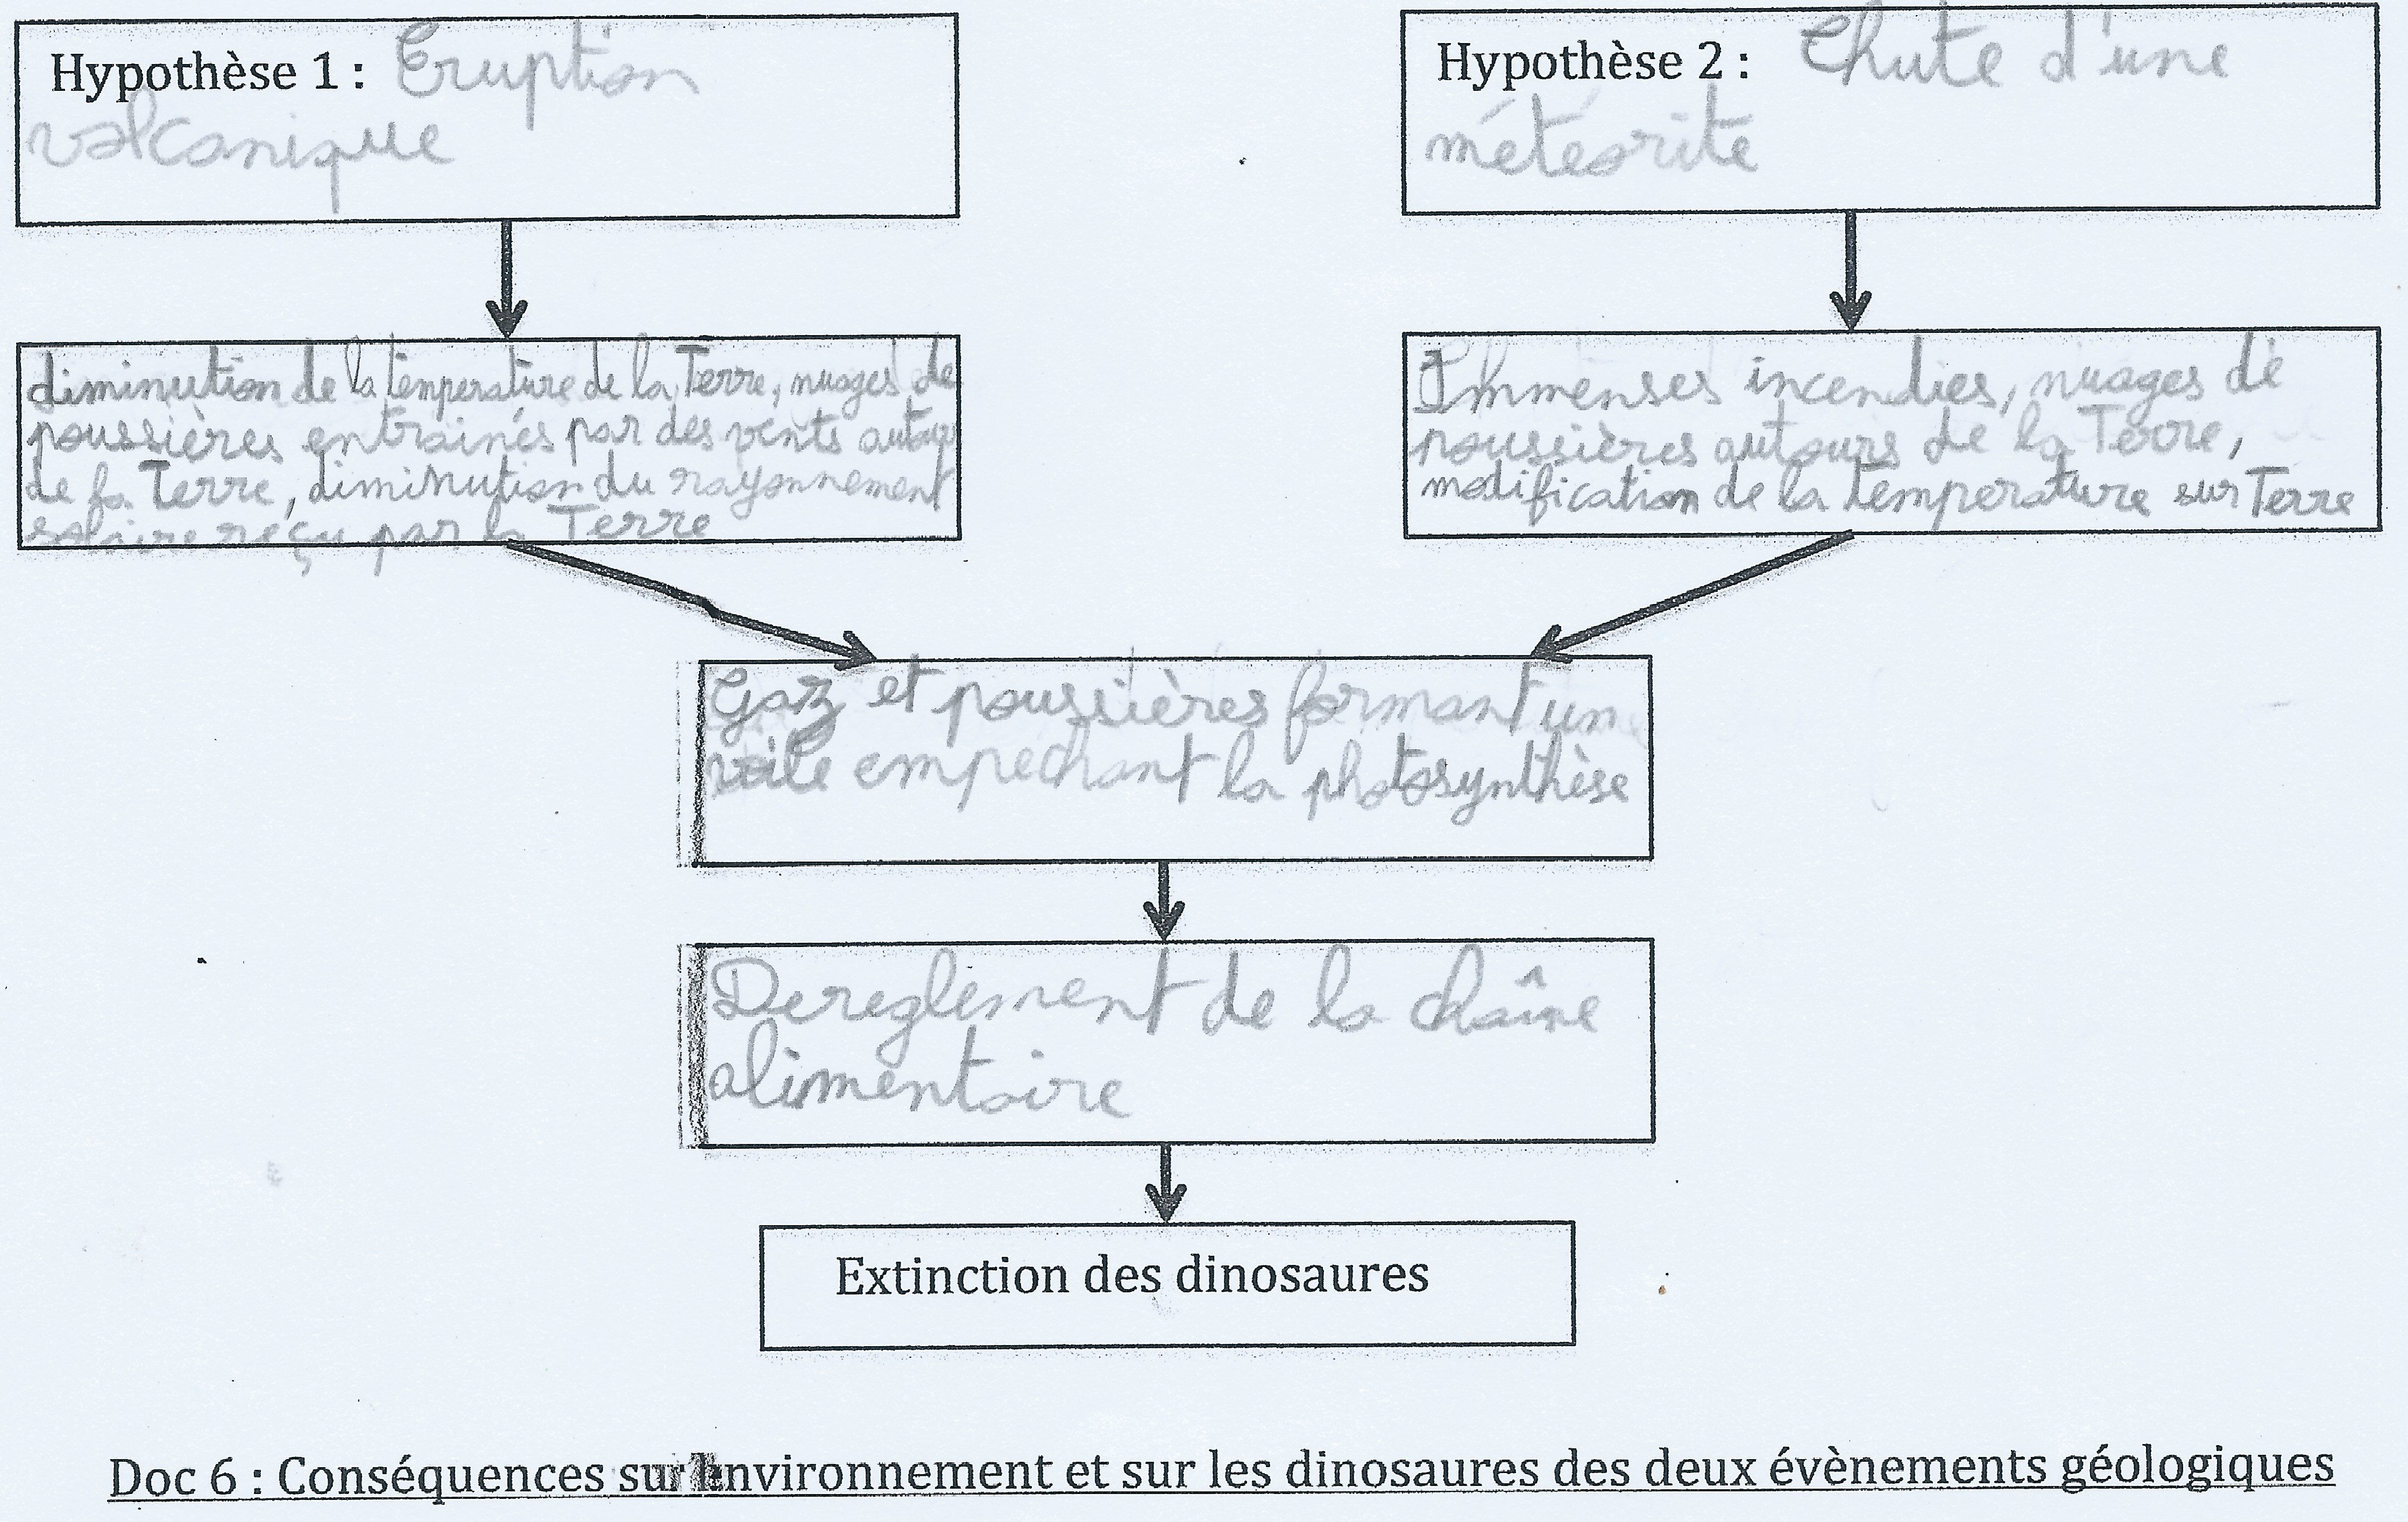 Hypothèse 1 : Eruption
volcanique
Hypothèse 2 : Chute d'une
météorite
diminution de la temperature de la Terre, nuages de
poussières entrainés par des vents autour
de la Terre, diminution du rayonnement
solaire reçu par la Terre
Immenses incendies, nuages de
poussières autours de la Terre,
modification de la temperature sur Terre
Gaz et poussières formant un
voile empechant la photosynthèse
Dereglement de la chaîne
alimentaire
Extinction des dinosaures
Doc 6 : Conséquences sur environnement et sur les dinosaures des deux évènements géologiques